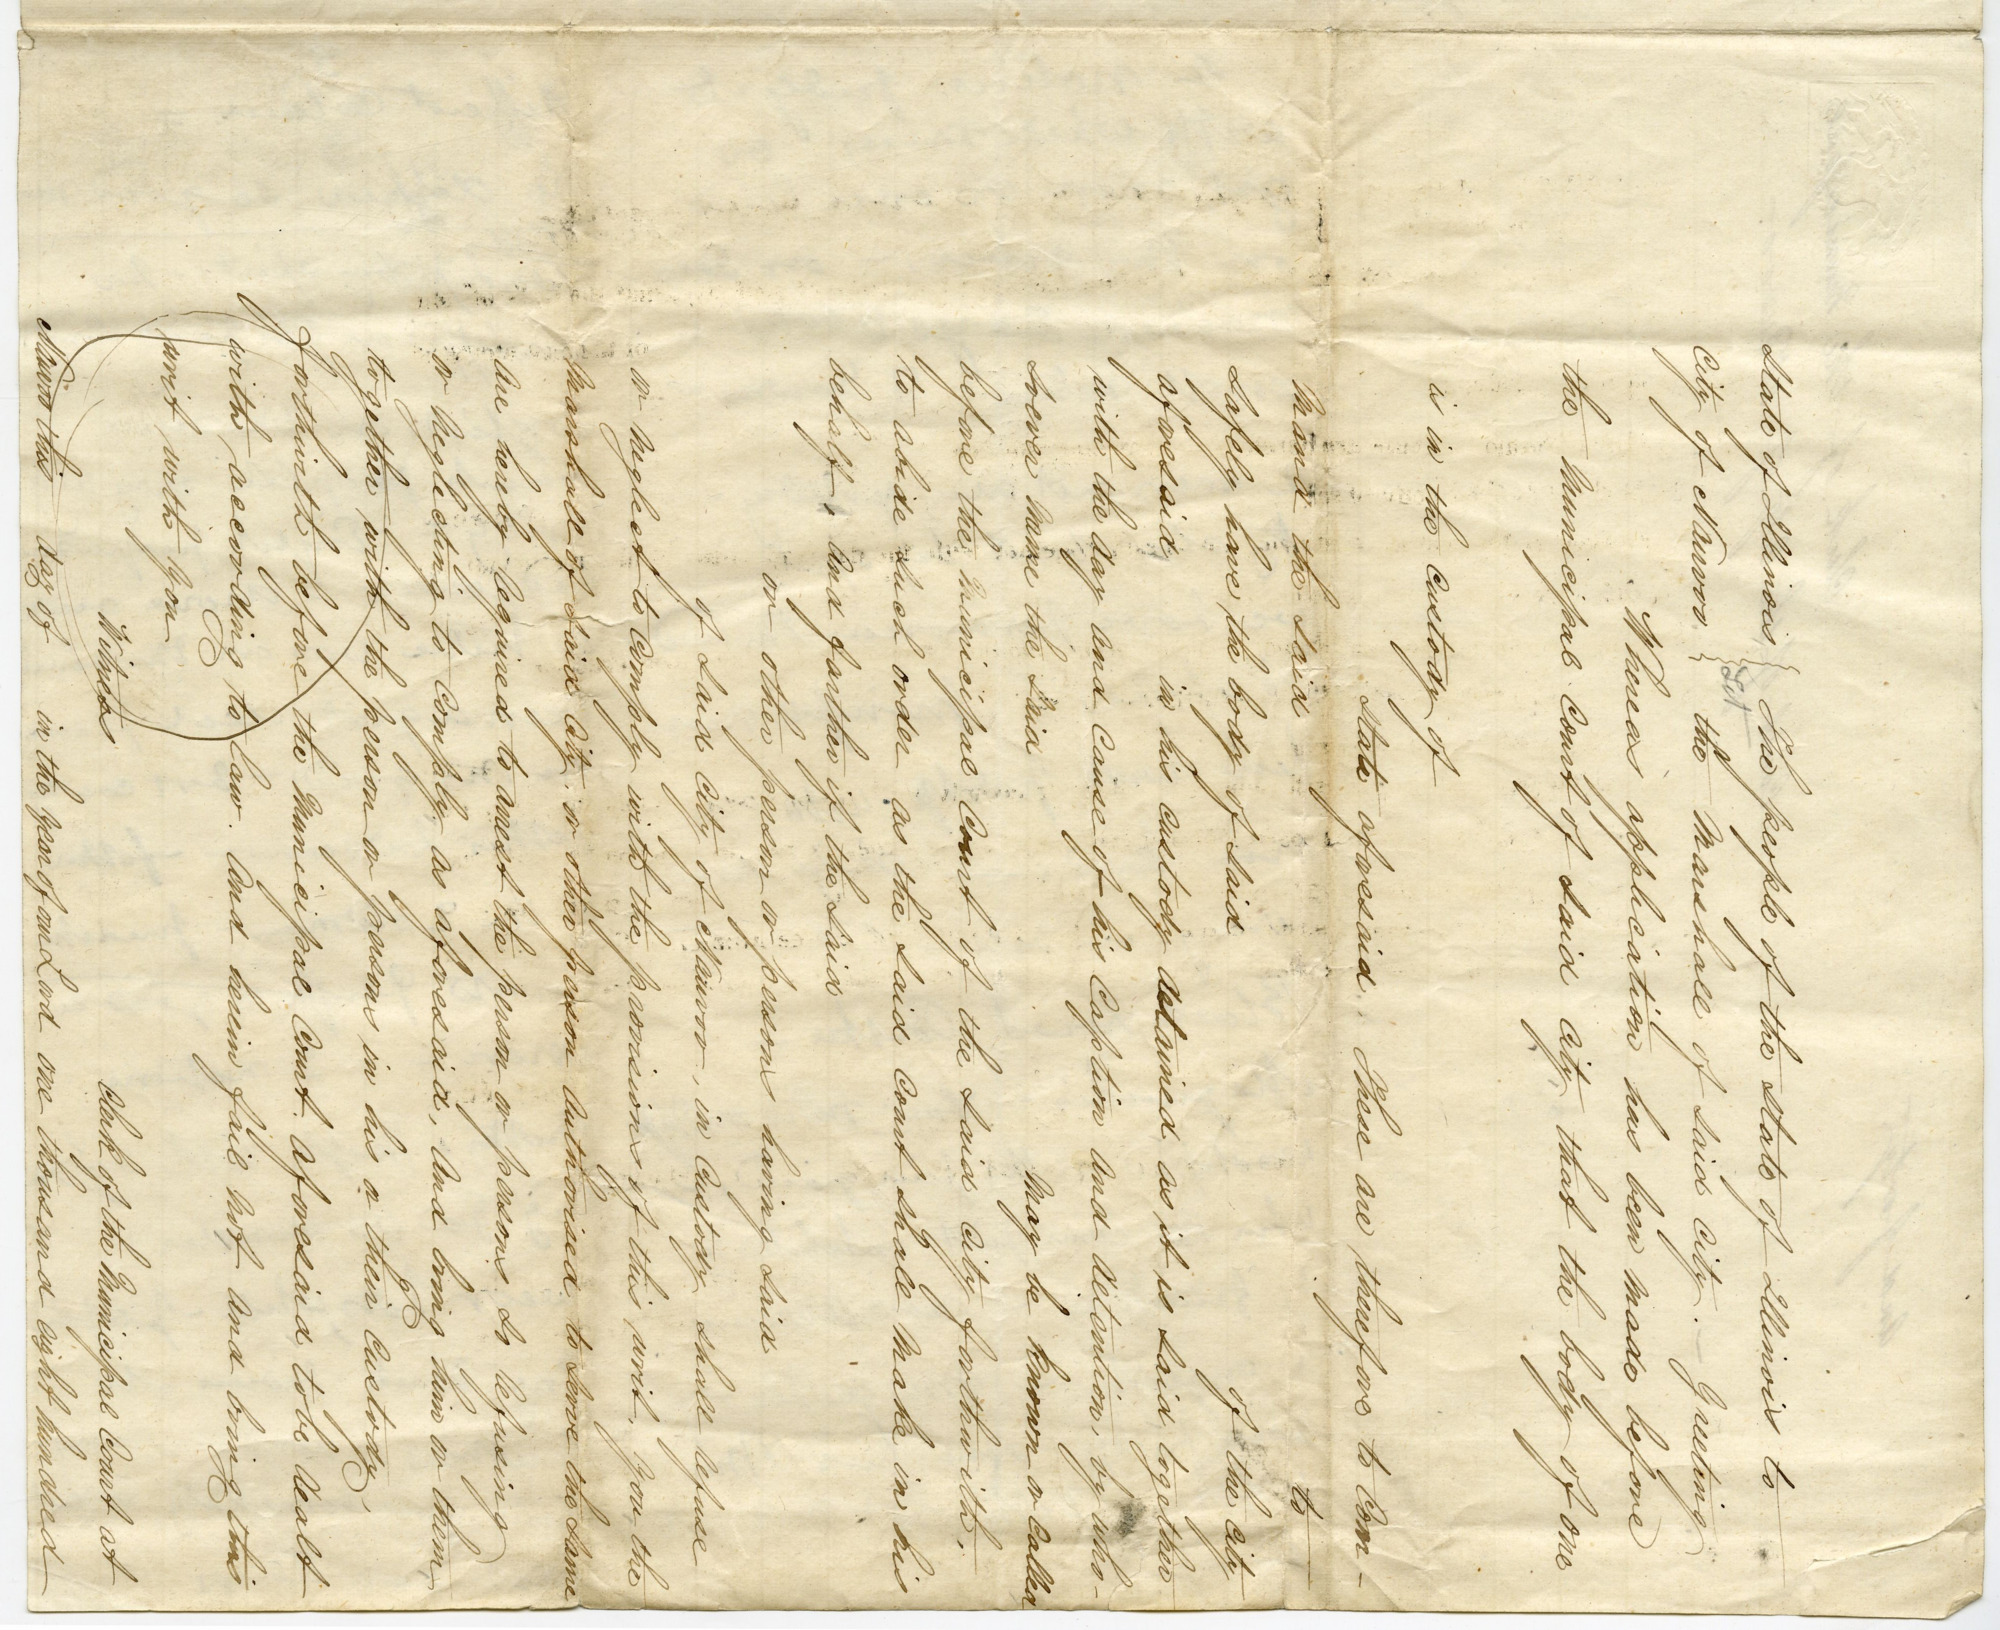 State of Illinois } The people of the state of Illinois to
City of Nauvoo } Sct the Marshall of said City. — Greeting
Whereas application has been made before
the Municipal Court of said City that the body of one
is in the Custody of
State aforesaid. These are therefore to Com-
mand the said to
Safely have the body of said of the City
aforesaid in his custody detained as it is said together
with the day and Cause of his Caption and detention, by who-
soever name the said may be known or Called
before the Municipal Court of the said City forthwith,
to abide such order as the said Court shall make in his
behalf, and further if the said
or other person or persons having said
of said City of Nauvoo, in Custody shall refuse
or neglect to Comply with the provisions of this writ, you the
Marshall of said City, or other person authorised to serve the same
are hereby required to arrest the person or persons so refusing
or neglecting to Comply as aforesaid, and bring him or them
together with the person or persons in his or their Custody,
forthwith before the Municipal Court aforesaid to be dealt
with according to law. And herein fail not and bring this
writ with you
Witness Clerk of the Municipal Court at
Nauvoo this day of in the year of our Lord one thousand eight hundred